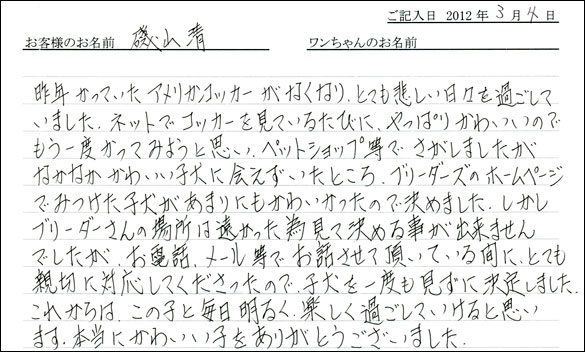 ご記入日 2012年3月4日
お客様のお名前 磯山清 ワンちゃんのお名前
昨年かっていたアメリカンコッカーがなくなり、とても悲しい日々を過ごして
いました。ネットでコッカーを見ているたびに、やっぱりかわいいので
もう一度かってみようと思い、ペットショップ等でさがしましたが
なかなかかわいい子犬に会えずいたところ、ブリーダーズのホームページ
でみつけた子犬があまりにもかわいかったので決めました。しかし
ブリーダーさんの場所は遠かった為見て決める事が出来ません
でしたが、お電話、メール等でお話させて頂いている間に、とても
親切に対応してくださったので、子犬を一度も見ずに決定しました。
これからは、この子と毎日明るく、楽しく過ごしていけると思い
ます。本当にかわいい子をありがとうございました。